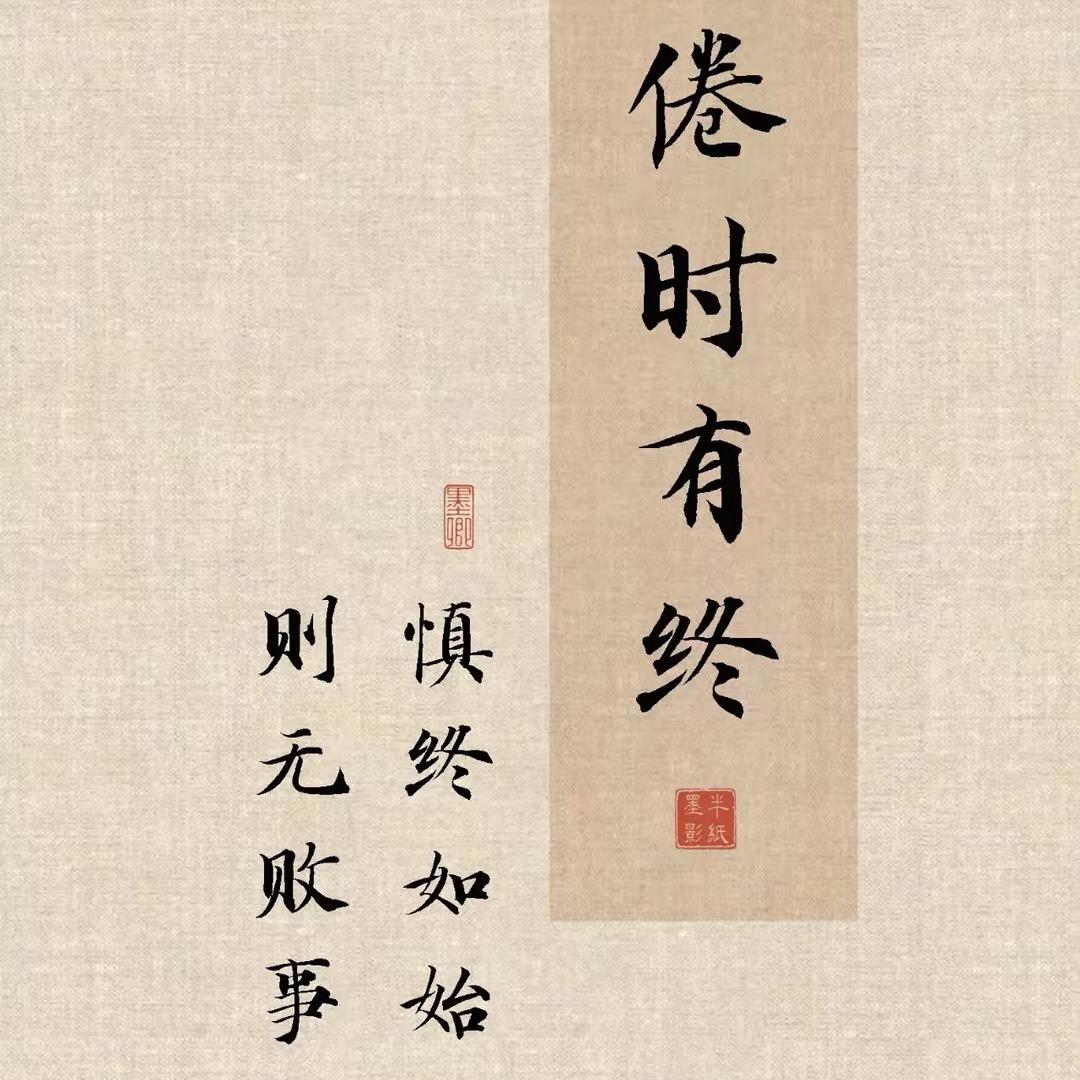 倦时有终
半纸
墨影
墨卿
慎终如始
则无败事